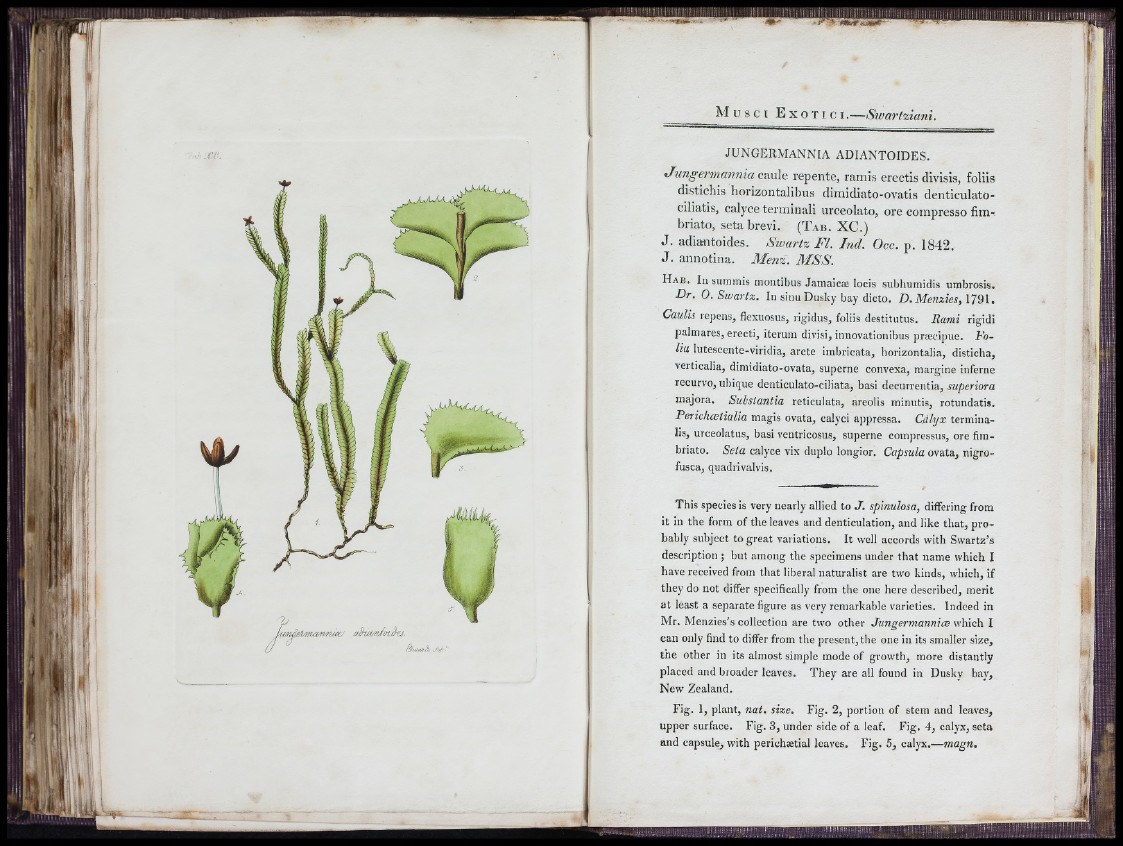 Tab. XC.
1.
2
3.
4.
5.
Jungermannia adiantoides.
MUSCI EXOTICI.—Swartziani.
JUNGERMANNIA ADIANTOIDES.
Jungermannia caule repente, ramis erectis divisis, foliis
distichis horizontalibus dimidiato-ovatis denticulato-
ciliatis, calyce terminali urceolato, ore compresso fim-
briato, seta brevi. (TAB. XC.)
J. adiantoides. Swartz Fl. Ind. Occ. p. 1842.
J. annotina. Menz. MSS.
HAB. In summis montibus Jamaicæ locis subhumidis umbrosis.
Dr. O. Swartz. In sinu Dusky bay dicto. D. Menzies, 1791.
Caulis repens, flexuosus, rigidus, foliis destitutus. Rami rigidi
palmares, erecti, iterum divisi, innovationibus præcipue. Fo-
lia lutescente-viridia, arcte imbricata, horizontalia, disticha,
verticalia, dimidiato-ovata, superne convexa, margine inferne
recurvo, ubique denticulato-ciliata, basi decurrentia, superiora
majora. Substantia reticulata, areolis minutis, rotundatis.
Perichætialia magis ovata, calyci appressa. Calyx termina-
lis, urceolatus, basi ventricosus, superne compressus, ore fim-
briato. Seta calyce vix duplo longior. Capsula ovata, nigro-
fusca, quadrivalvis.
This species is very nearly allied to J. spinulosa, differing from
it in the form of the leaves and denticulation, and like that, pro-
bably subject to great variations. It well accords with Swartz's
description ; but among the specimens under that name which I
have received from that liberal naturalist are two kinds, which, if
they do not differ specifically from the one here described, merit
at least a separate figure as very remarkable varieties. Indeed in
Mr. Menzies's collection are two other Jungermanniæ which I
can only find to differ from the present, the one in its smaller size,
the other in its almost simple mode of growth, more distantly
placed and broader leaves. They are all found in Dusky bay,
New Zealand.
Fig. 1, plant, nat. size. Fig. 2, portion of stem and leaves,
upper surface. Fig. 3, under side of a leaf. Fig. 4, calyx, seta
and capsule, with perichætial leaves. Fig. 5, calyx.—magn.